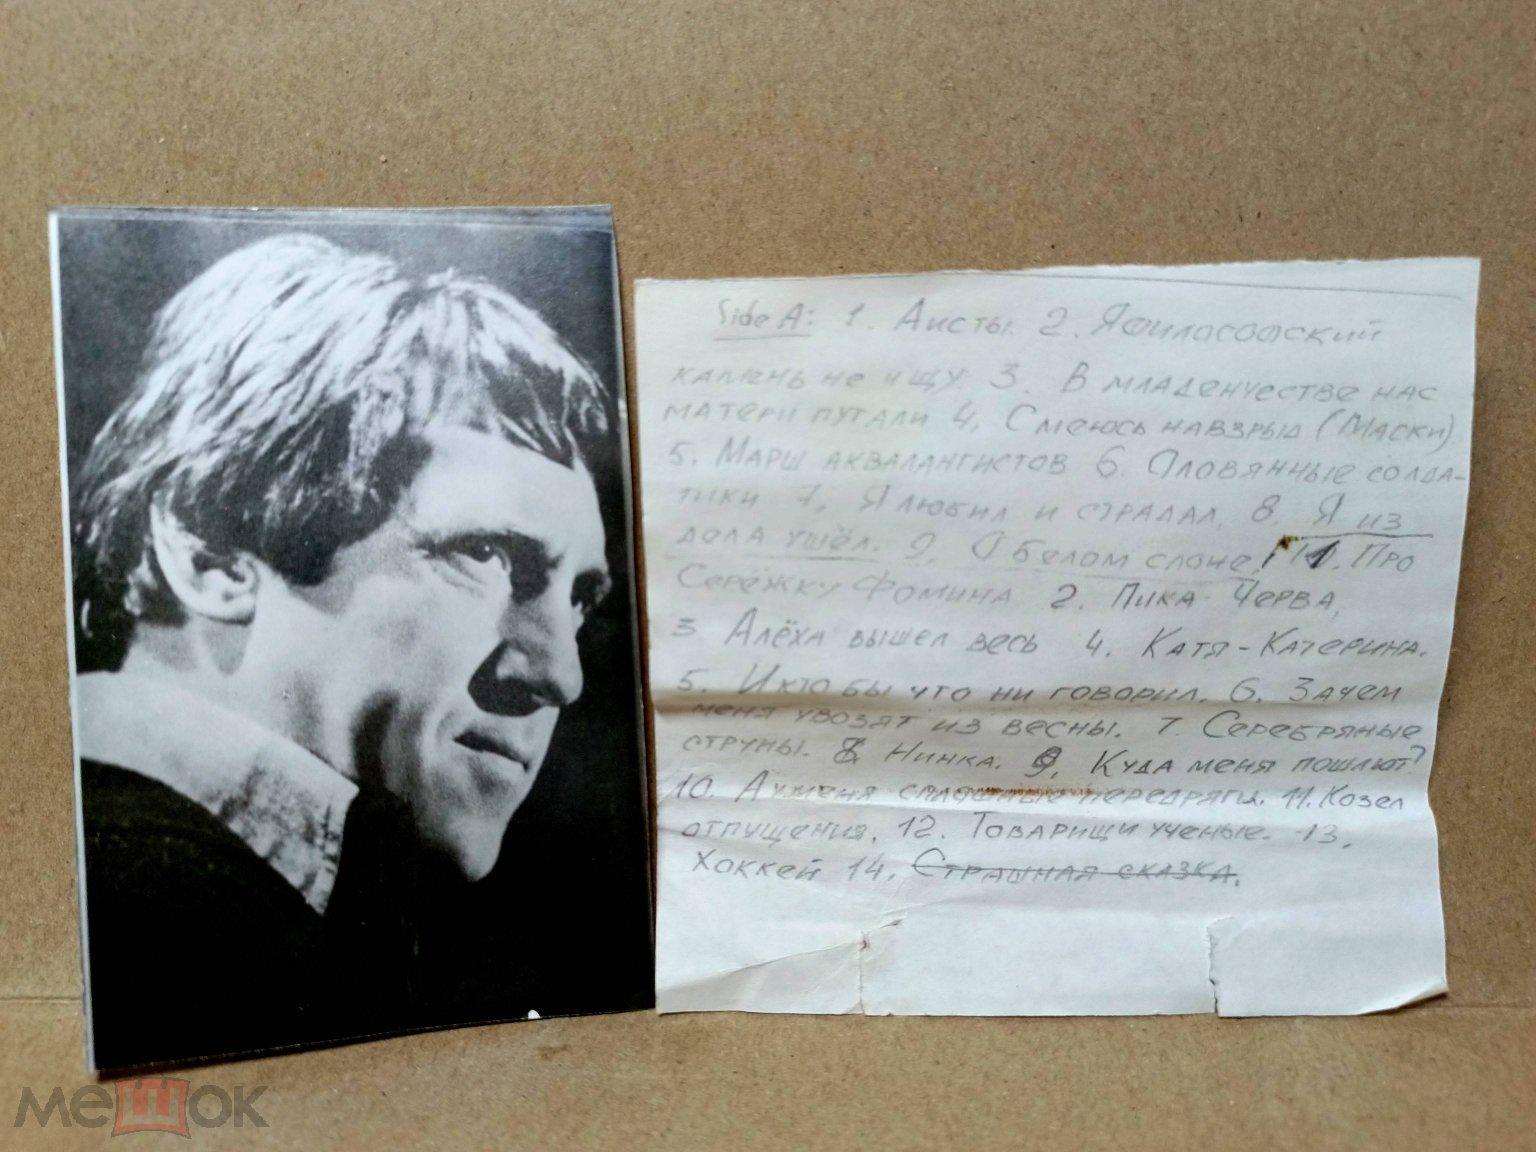 Side A: 1. Аисты. 2. Я философский
камень не ищу. 3. В младенчестве нас
матери пугали 4. Смеюсь навзрыд (Маски)
5. Марш аквалангистов 6. Оловянные солда-
тики 7. Я любил и страдал. 8. Я из
дела ушёл. 9. О белом слоне. 1. Про
Серёжку Фомина 2. Пика-Черва,
3 Алёха вышел весь 4. Катя-Катерина.
5. И кто бы что ни говорил. 6. Зачем
меня увозят из весны. 7. Серебряные
струны. 8. Нинка. 9. Куда меня пошлют?
10. А у меня сплошные передряги. 11. Козел
отпущения. 12. Товарищи ученые. 13.
Хоккей 14. Страшная сказка.
мешок